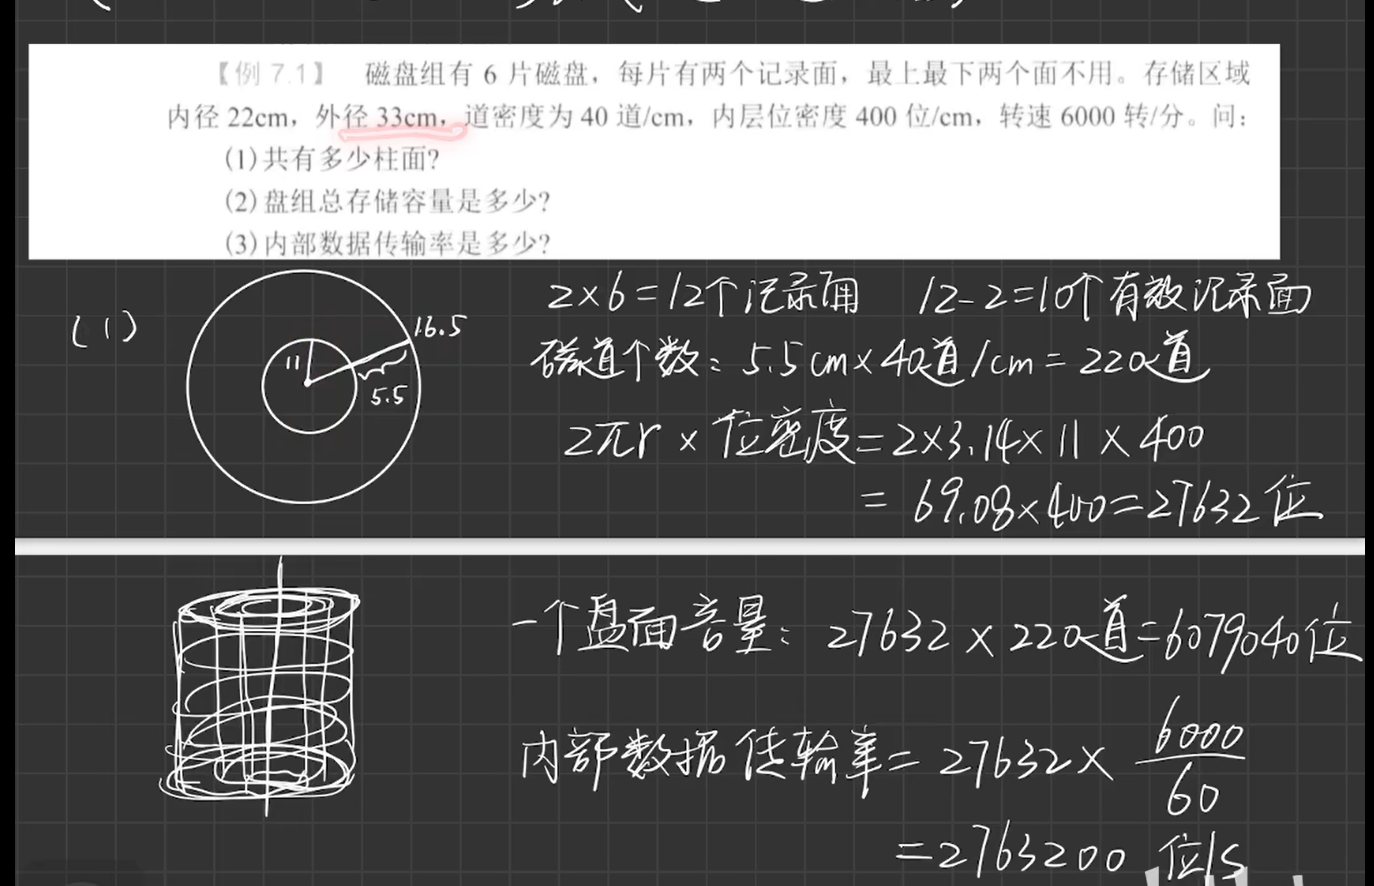 【例 7.1】 磁盘组有 6 片磁盘，每片有两个记录面，最上最下两个面不用。存储区域
内径 22cm，外径 33cm，道密度为 40 道/cm，内层位密度 400 位/cm，转速 6000 转/分。问：
(1)共有多少柱面?
(2)盘组总存储容量是多少?
(3)内部数据传输率是多少?
(1)
11
16.5
5.5
2×6=12个记录面 12-2=10个有效记录面
磁道个数：5.5cm×40道/cm=220道
2πr × 位密度=2×3.14×11×400
= 69.08×400=27632位
一个盘面容量：27632×220道=6079040位
内部数据传输率=27632× 6000/60
=2763200 位/s